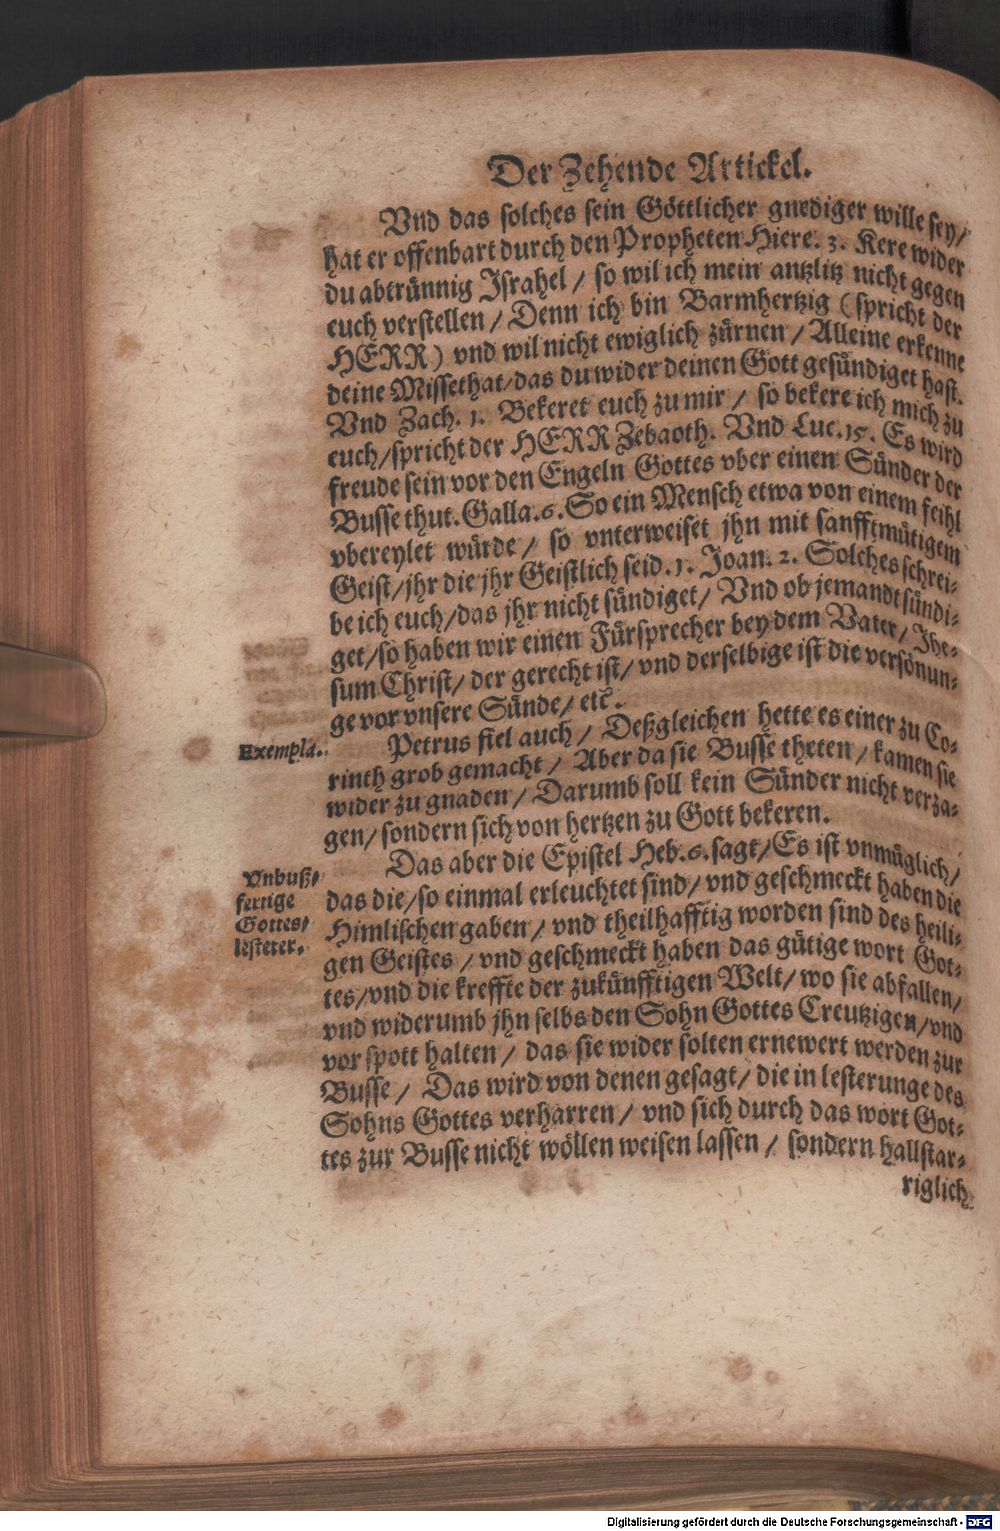 Der Zehende Artickel.
Vnd das solches sein Göttlicher gnediger wille sey/
hat er offenbart durch den Propheten Hiere. 3. Kere wider
du abtrünnig Israhel / so wil ich mein antzlitz nicht gegen
euch verstellen / Denn ich bin Barmhertzig (spricht der
HERR) vnd wil nicht ewiglich zürnen / Alleine erkenne
deine Missethat/das du wider deinen Gott gesündiget hast.
Vnd Zach. 1. Bekeret euch zu mir / so bekere ich mich zu
euch/spricht der HERR Zebaoth. Vnd Luc.15. Es wird
freude sein vor den Engeln Gottes vber einen Sünder der
Busse thut. Galla.6. So ein Mensch etwa von einem feihl
vbereylet würde / so vnterweiset jhn mit sanfftmütigem
Geist/jhr die jhr Geistlich seid. 1. Joan. 2. Solches schrei-
be ich euch/das jhr nicht sündiget/ Vnd ob jemandt sündi-
get/so haben wir einen Fürsprecher bey dem Vater/ Jhe-
sum Christ/ der gerecht ist/ vnd derselbige ist die versönun-
ge vor vnsere Sünde/ etc.
Exempla.
Petrus fiel auch / Deßgleichen hette es einer zu Co-
rinth grob gemacht / Aber da sie Busse theten / kamen sie
wider zu gnaden / Darumb soll kein Sünder nicht verza-
gen/ sondern sich von hertzen zu Gott bekeren.
Vnbuß/
fertige
Gottes/
lesterer.
Das aber die Epistel Heb.6. sagt/Es ist vnmüglich/
das die/so einmal erleuchtet sind/ vnd geschmeckt haben die
Himlischen gaben / vnd theilhafftig worden sind des heili-
gen Geistes / vnd geschmeckt haben das gütige wort Got-
tes/vnd die kreffte der zukünfftigen Welt/ wo sie abfallen/
vnd widerumb jhn selbs den Sohn Gottes Creutzigen/vnd
vor spott halten / das sie wider solten ernewert werden zur
Busse / Das wird von denen gesagt/ die in lesterunge des
Sohns Gottes verharren / vnd sich durch das wort Got-
tes zur Busse nicht wöllen weisen lassen / sondern hallstar-
riglich
Digitalisierung gefördert durch die Deutsche Forschungsgemeinschaft - DFG